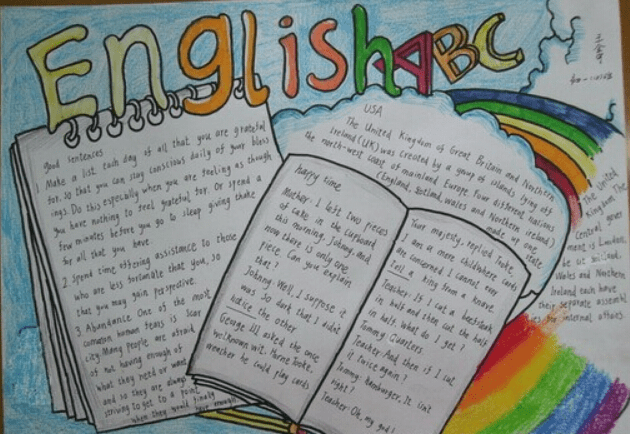 English ABC
good sentences
1. Make a list each day of all that you are grateful
for. so that you can stay conscious daily of your bless
ings. Do this especially when you are feeling as though
you have nothing to feel grateful for. Or spend a
few minutes before you go to sleep giving thanks
for all that you have.
2. Spend time offering assistance to those
who are less fortunate that you, so
that you may gain perspective.
3. Abundance One of the most
common human fears is scar
city. Many people are afraid
of not having enough of
what they need or want
and so they are always
striving to get to a point
when they would finally
have enough
USA
The United Kingdom of Great Britain and Northern
Ireland (UK) was created by a group of islands lying off
the north-west coast of mainland Europe. Four different nations
(England, Scotland, wales and Northern ireland)
made up one
state
happy time
Mother: I left two pieces
of cake in the cupboard
this morning, Johnny, And
now there is only one
piece. Can you explain
that?
Johnny: Well, I suppose it
was so dark that I didn't
notice the other
George III, asked the once
well known wit, Horne Tooke,
weather he could play cards
Your majesty, replied Tooke,
I am a mere child where cards
are concerned I cannot even
tell a king from a knave
Teacher: If I cut a beefsteak
in half and then cut the half
in half. What do I get?
Tommy: Quarters.
Teacher: And then if I cut
it twice again?
Tommy: Hamburger, It isn't
right!
Teacher: Oh, my god!
The United
Kingdom The
Central gover
ment is London,
Wales and Northern
Ireland each have
their separate assembl
ies for internal affairs.